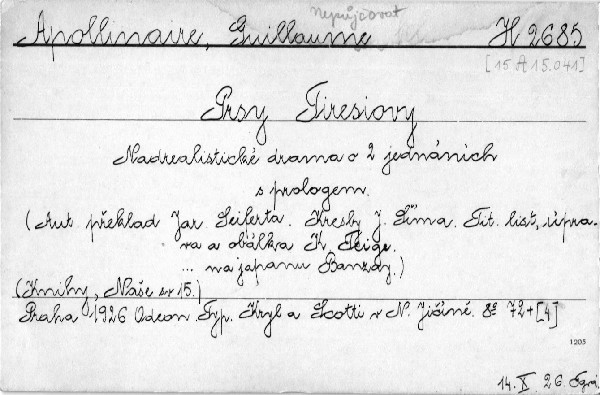 Nepůjčovat
Apollinaire, Guillaume H 2685
[15 A 15.041]
Prsy Tiresiovy
Nadrealistické drama o 2 jednáních
s prologem.
(Aut. překlad Jar. Seiferta. Kresby J. Šíma. Tit. list, úpra-
va a obálka K. Teige.
... na japanu Banzay.)
(Knihy, Naše sv 15.)
Praha 1926 Odeon. Typ. Kryl a Scotti v N. Jičíně. 8° 72+[4]
1205
14. X. 26.